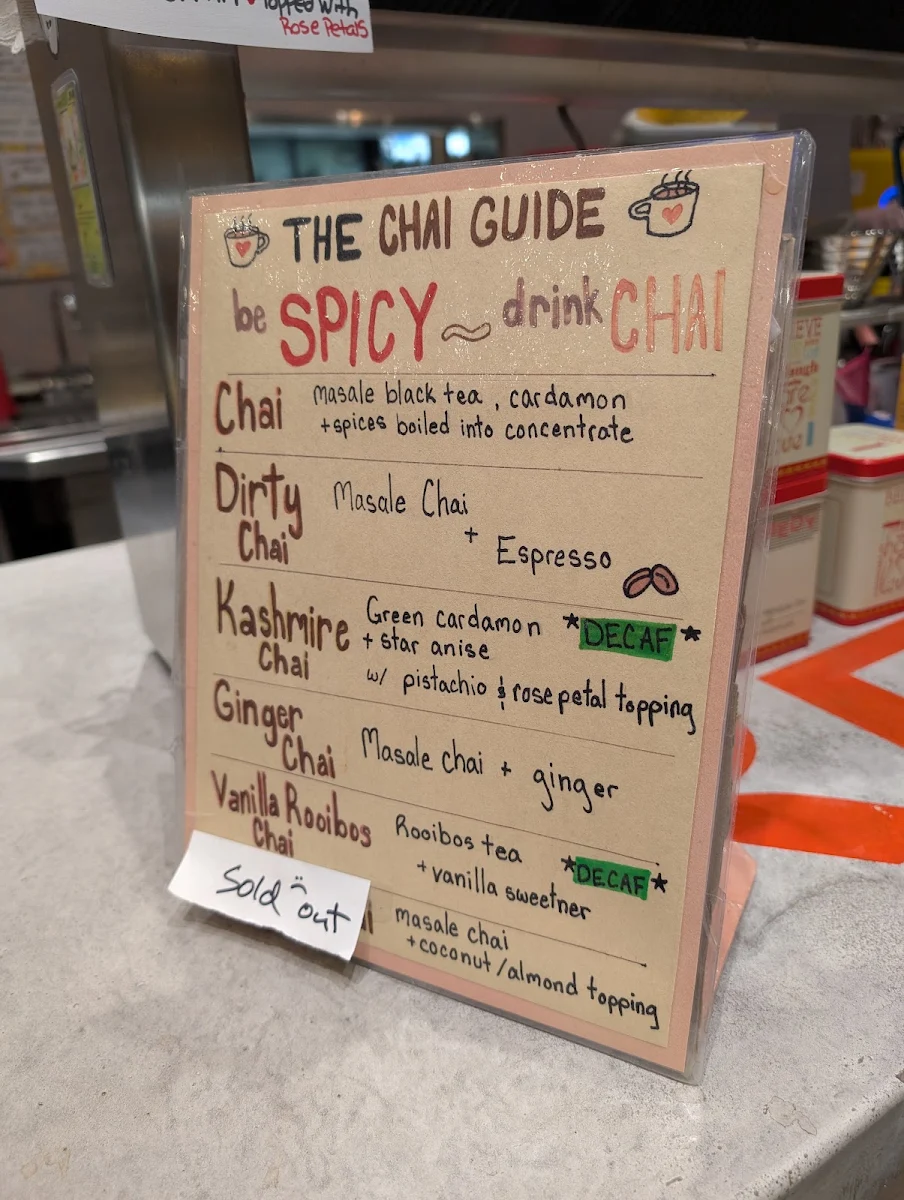 Topped with
Rose Petals
THE CHAI GUIDE
be SPICY ~ drink CHAI
Chai masale black tea, cardamon
+spices boiled into concentrate
Dirty Chai Masale Chai
+
Espresso
Kashmire Chai Green cardamon *DECAF*
+ star anise
w/ pistachio & rose petal topping
Ginger Chai Masale chai + ginger
Vanilla Rooibos Chai Rooibos tea *DECAF*
+vanilla sweetner
Sold out
masale chai
+coconut/almond topping